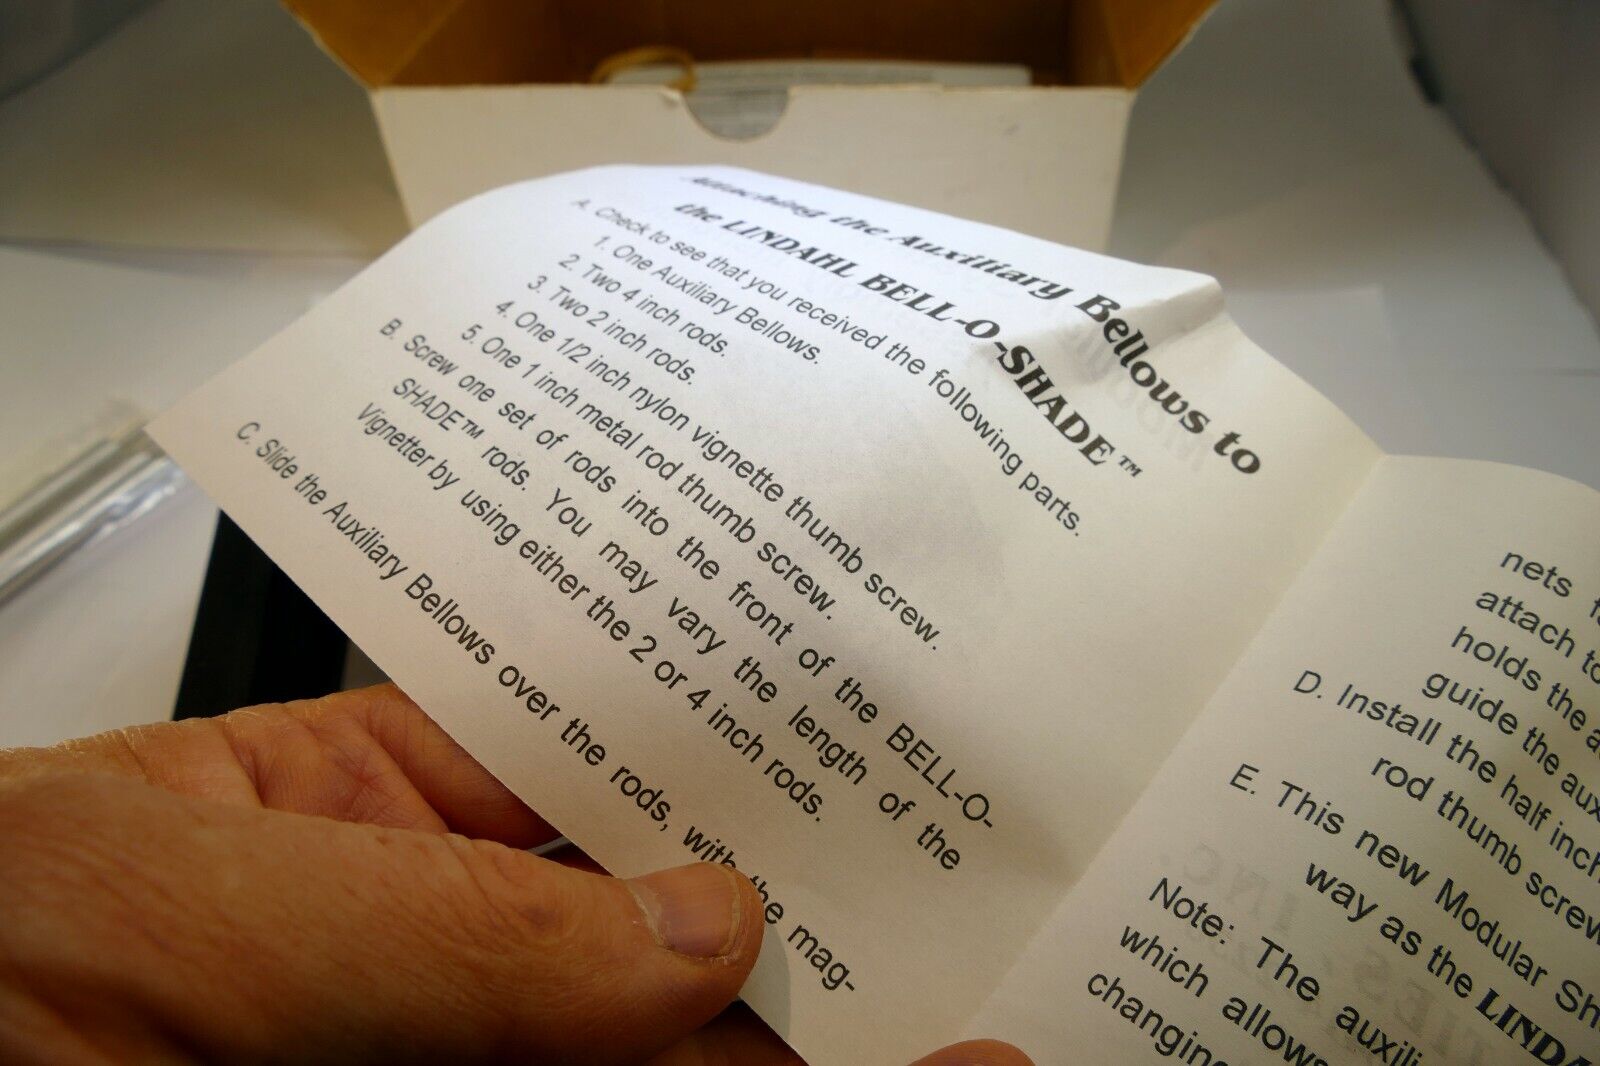 Attaching the Auxiliary Bellows to
the LINDAHL BELL-O-SHADE™
A. Check to see that you received the following parts.
1. One Auxiliary Bellows.
2. Two 4 inch rods.
3. Two 2 inch rods.
4. One 1/2 inch nylon vignette thumb screw.
5. One 1 inch metal rod thumb screw.
B. Screw one set of rods into the front of the BELL-O-
SHADE™ rods. You may vary the length of the
Vignetter by using either the 2 or 4 inch rods.
C. Slide the Auxiliary Bellows over the rods, with the mag-
nets
attach to
holds the
guide the aux
D. Install the half inch
rod thumb screw
E. This new Modular Sh
way as the LINDA
Note: The auxili
which allows
changing